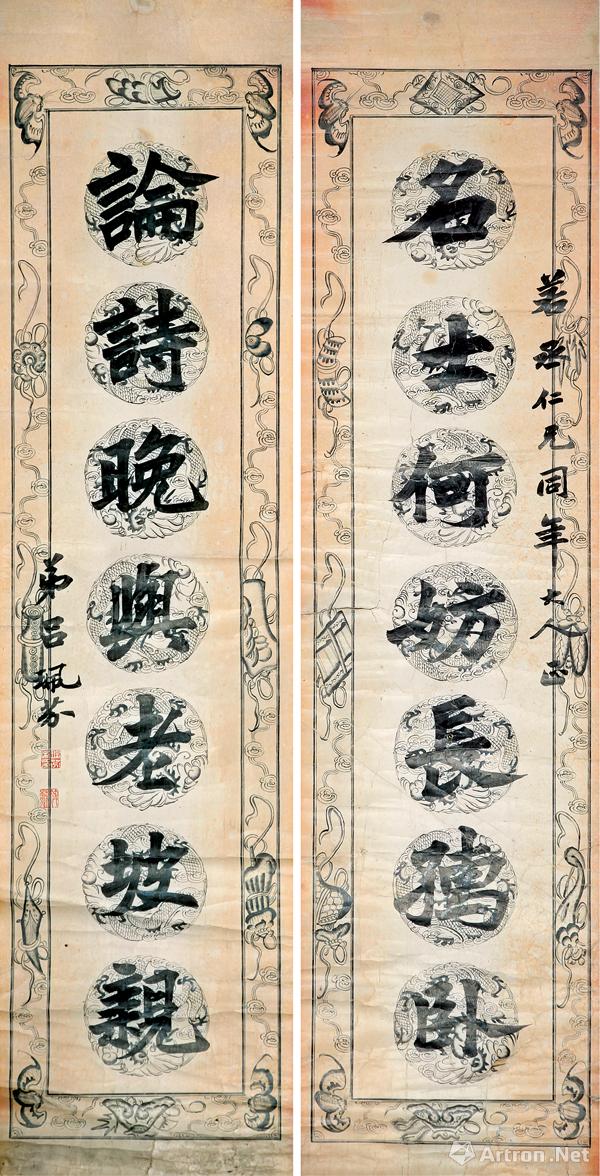 若丞仁兄同年大人正
名士何妨長獨卧
論詩晚與老坡親
弟呂珮芬
Artron.Net